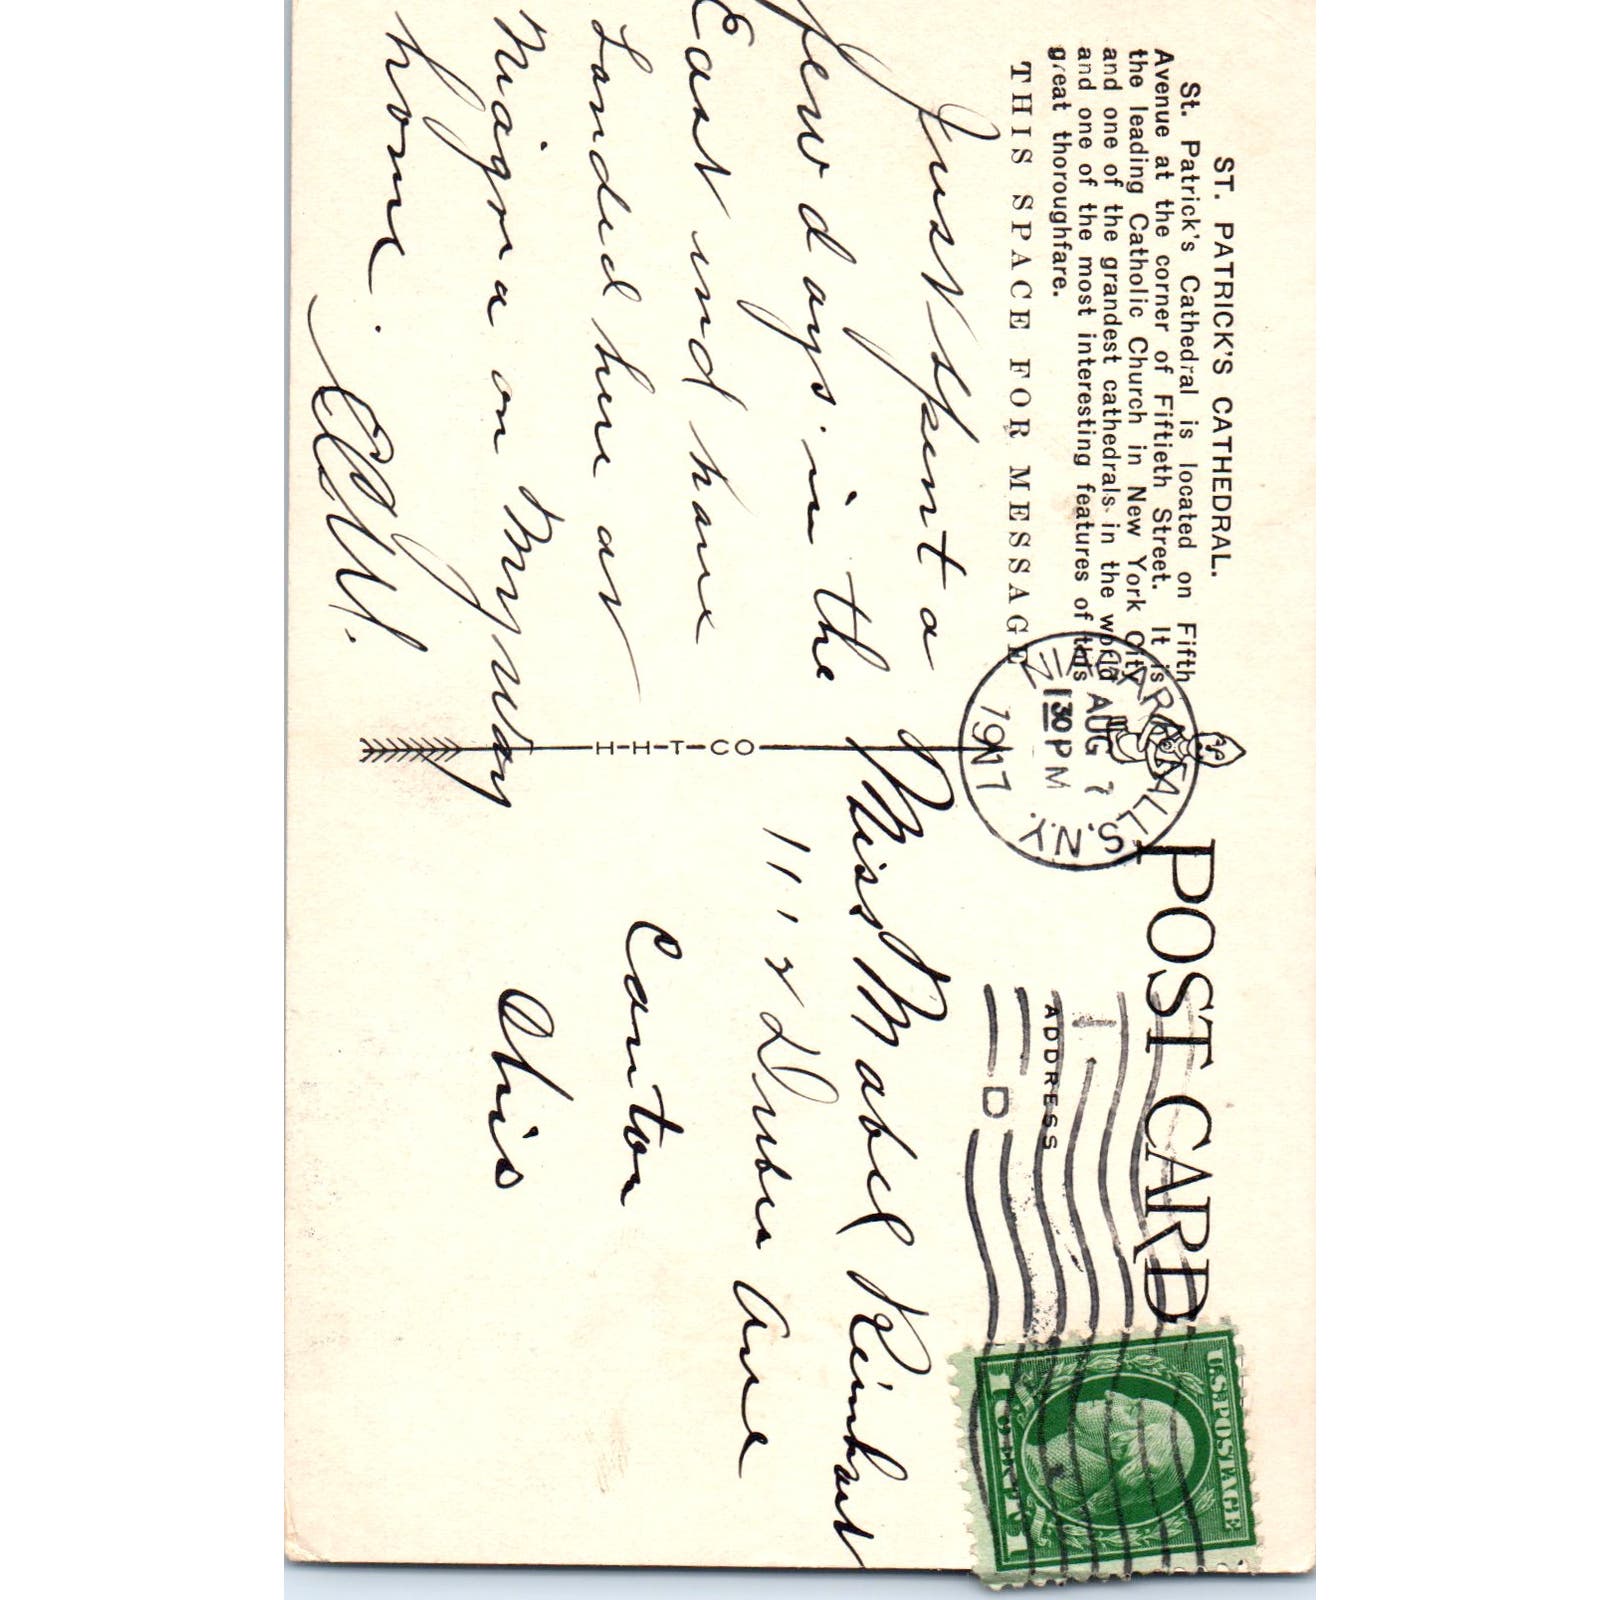 ST. PATRICK'S CATHEDRAL.
St. Patrick's Cathedral is located on Fifth
Avenue at the corner of Fiftieth Street. It is
the leading Catholic Church in New York City
and one of the grandest cathedrals in the world
and one of the most interesting features of this
great thoroughfare.
THIS SPACE FOR MESSAGE
Just spent a
few days in the
East und have
Landed here at
Niagra on My way
home.
H-H-T-CO
POST CARD
ADDRESS
NIAGARA FALLS
N.Y.
AUG 7
130 PM
1917
D
U.S. POSTAGE
1 CENT 1
Miss Mabel Reinhart
1112 Dueber Ave
Canton
Ohio